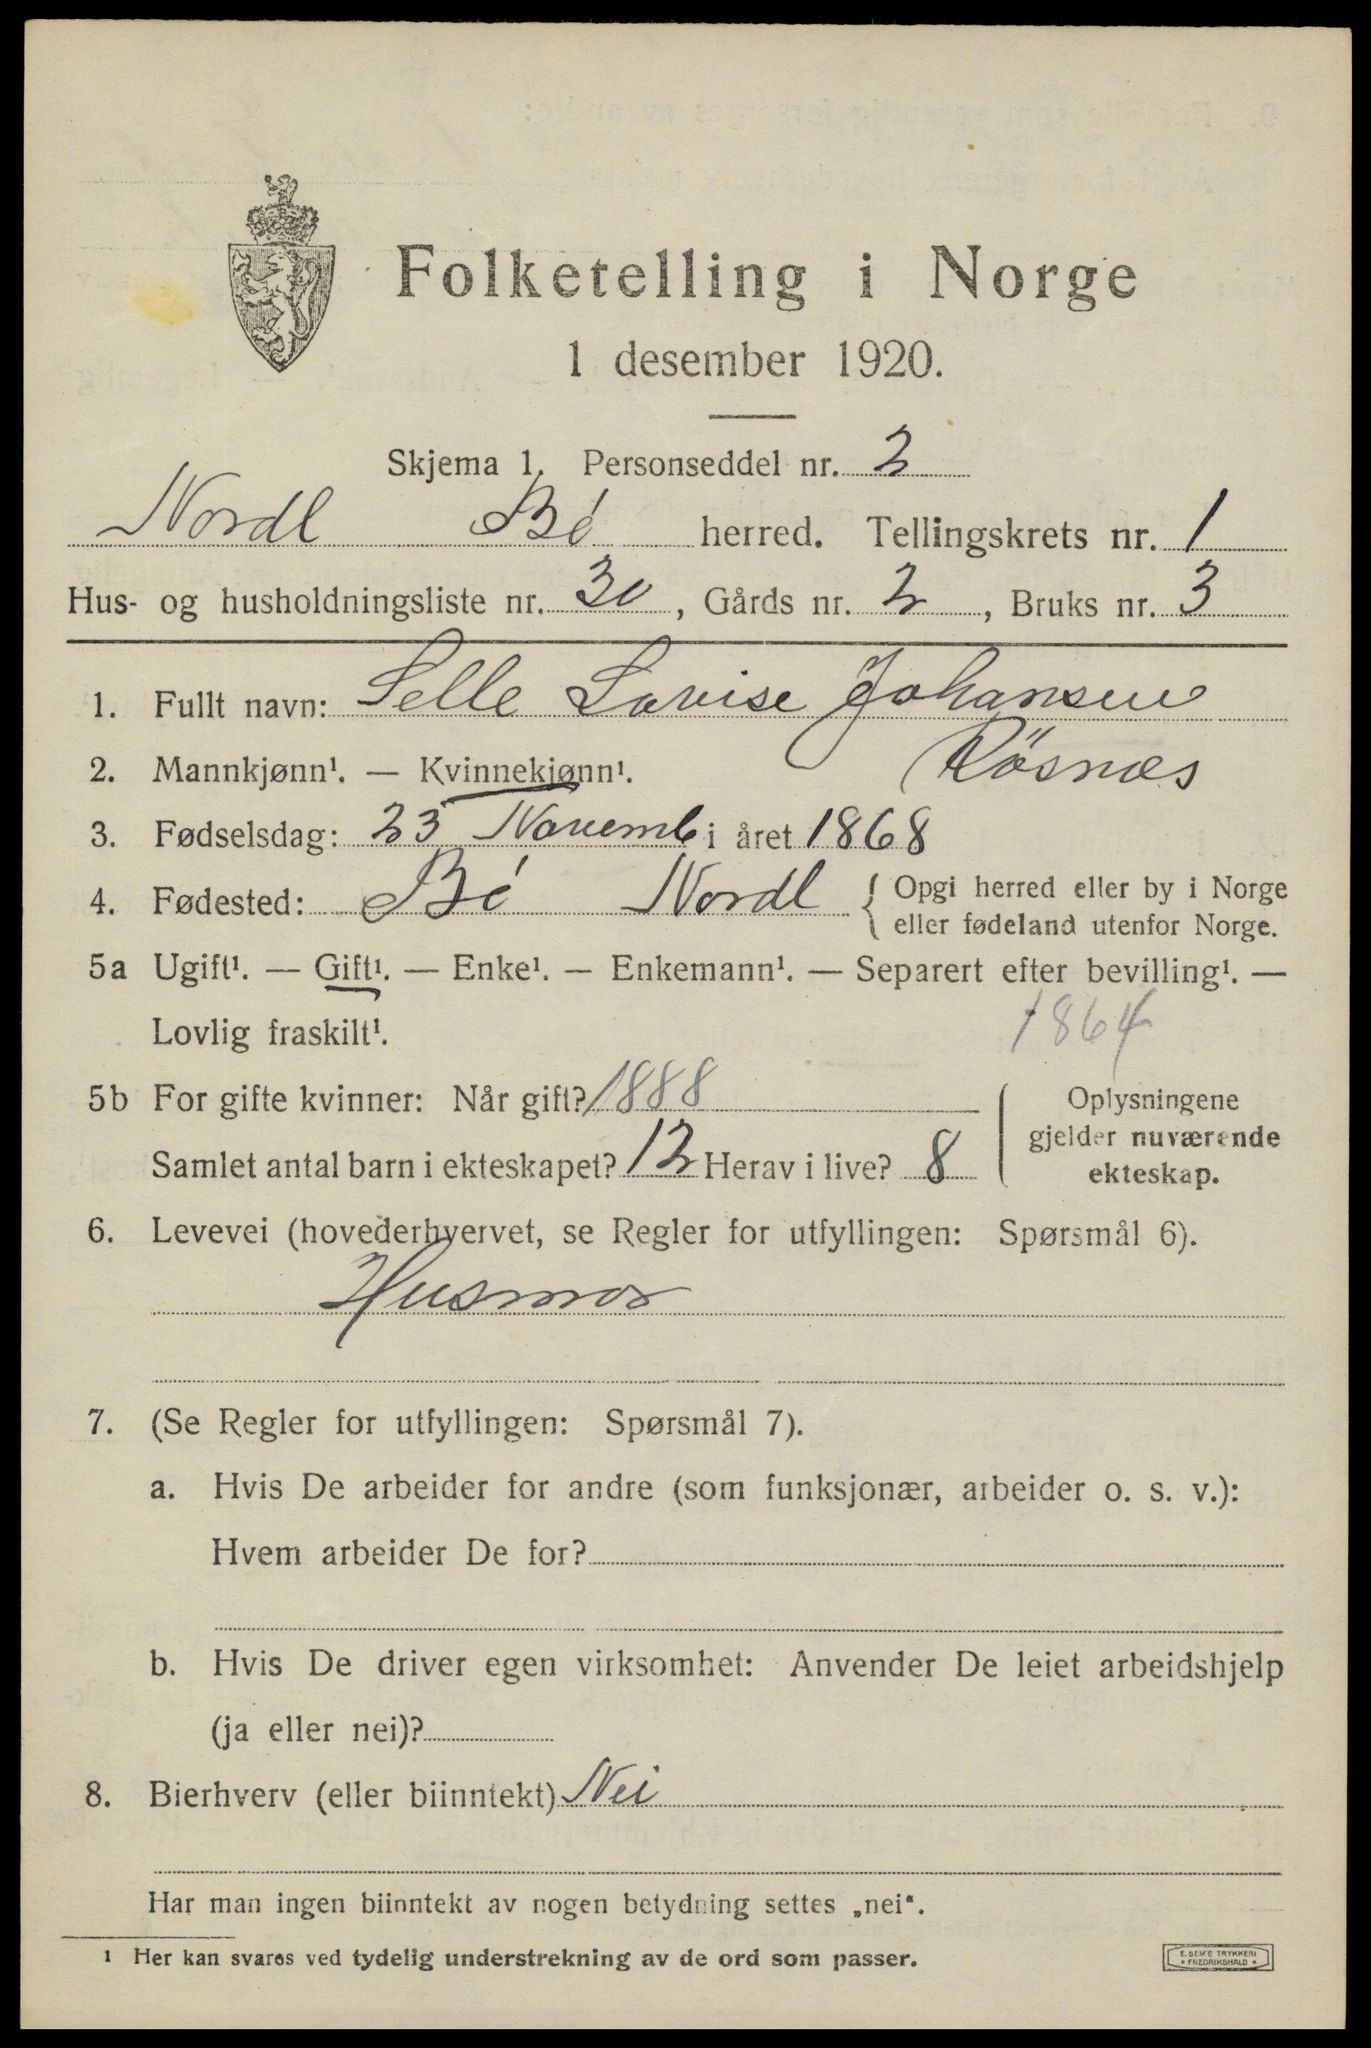 Folketelling i Norge
1 desember 1920.
Skjema 1. Personseddel nr. 2
Nordl Bö herred. Tellingskrets nr. 1
Hus- og husholdningsliste nr. 30, Gårds nr. 2, Bruks nr. 3
1. Fullt navn: Selle Lovise Johansen
Røsnæs
2. Mannkjønn¹. — Kvinnekjønn¹.
3. Fødselsdag: 23 Novemb i året 1868
4. Fødested: Bö Nordl { Opgi herred eller by i Norge
eller fødeland utenfor Norge.
5a Ugift¹. — Gift¹. — Enke¹. — Enkemann¹. — Separert efter bevilling¹. —
Lovlig fraskilt¹.
1864
5b For gifte kvinner: Når gift? 1888
Samlet antal barn i ekteskapet? 12 Herav i live? 8
Oplysningene
gjelder nuværende
ekteskap.
6. Levevei (hovederhvervet, se Regler for utfyllingen: Spørsmål 6).
Husmor
7. (Se Regler for utfyllingen: Spørsmål 7).
a. Hvis De arbeider for andre (som funksjonær, arbeider o. s. v.):
Hvem arbeider De for?
b. Hvis De driver egen virksomhet: Anvender De leiet arbeidshjelp
(ja eller nei)?
8. Bierhverv (eller biinntekt) Nei
Har man ingen biinntekt av nogen betydning settes „nei".
¹ Her kan svares ved tydelig understrekning av de ord som passer.
E. SEM'S TRYKKERI
* FREDRIKSHALD *